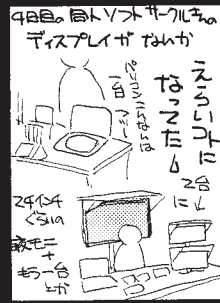 4日目の同人ソフトサークルさんの
ディスプレイがなんか
えらいコトに
なってた↓
パソコンなんは
一台
2台
に↓
24インチ
ぐらいの
液モニ
+
もう一台
とか